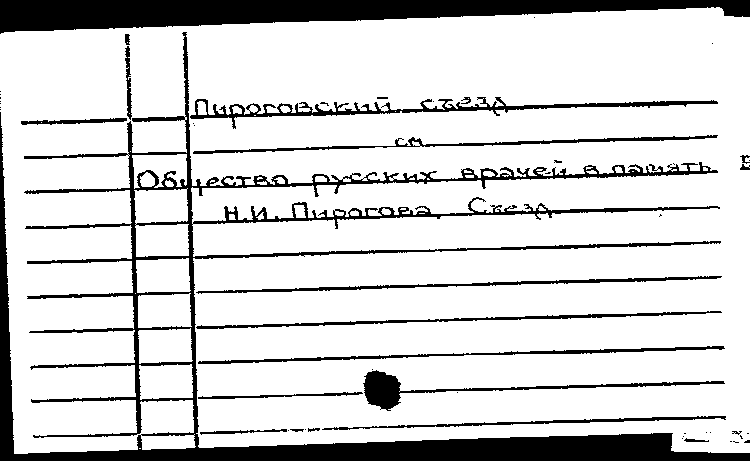 Пироговский съезд
см.
Общество русских врачей в память
Н.И. Пирогова. Съезд